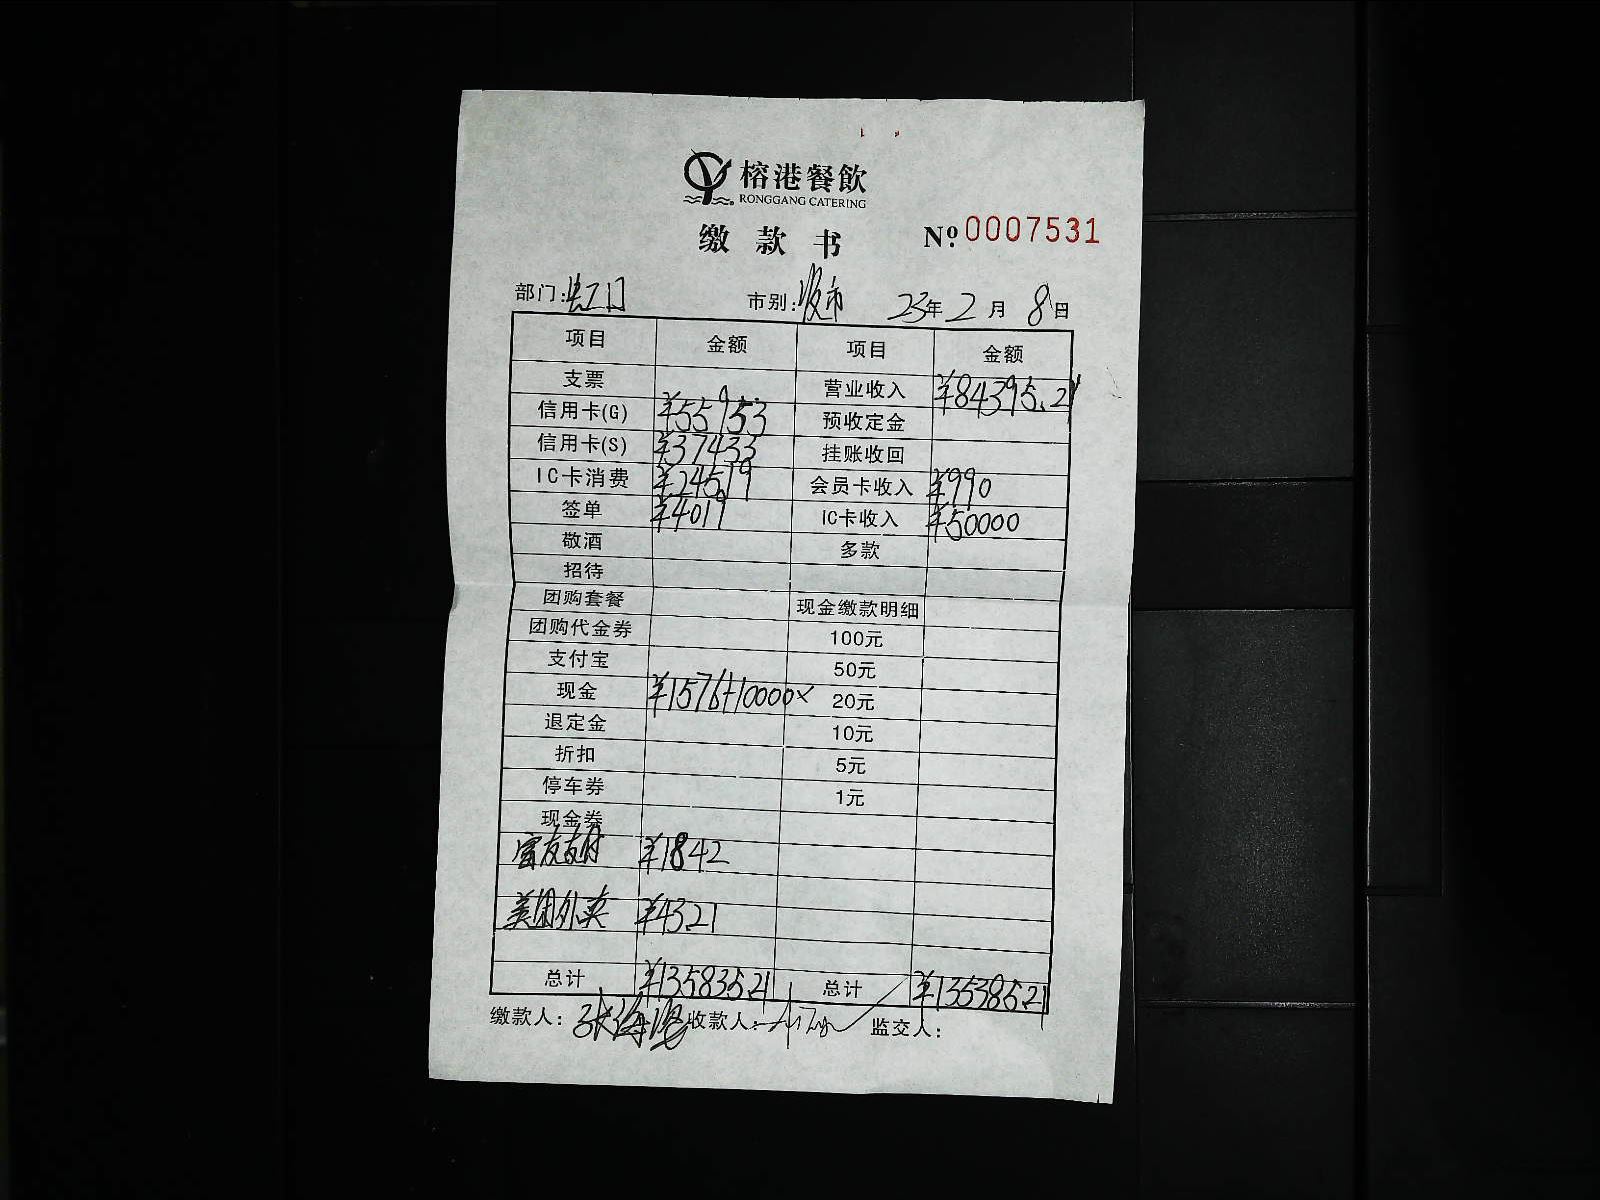 榕港餐飲
RONGGANG CATERING
缴款书 Nº 0007531
部门: 市别: 夜市 23年2月8日
项目 金额 项目 金额
支票 营业收入 ¥84395.21
信用卡(G) ¥55953 预收定金
信用卡(S) ¥37433 挂账收回
IC卡消费 ¥24519 会员卡收入 ¥990
签单 ¥4019 IC卡收入 ¥50000
敬酒 多款
招待
团购套餐 现金缴款明细
团购代金券 100元
支付宝 50元
现金 ¥1576+10000 20元
退定金 10元
折扣 5元
停车券 1元
现金券
富友支付 ¥1842
美团外卖 ¥43.21
总计 ¥135835.21 总计 ¥135385.21
缴款人: 收款人: 监交人: